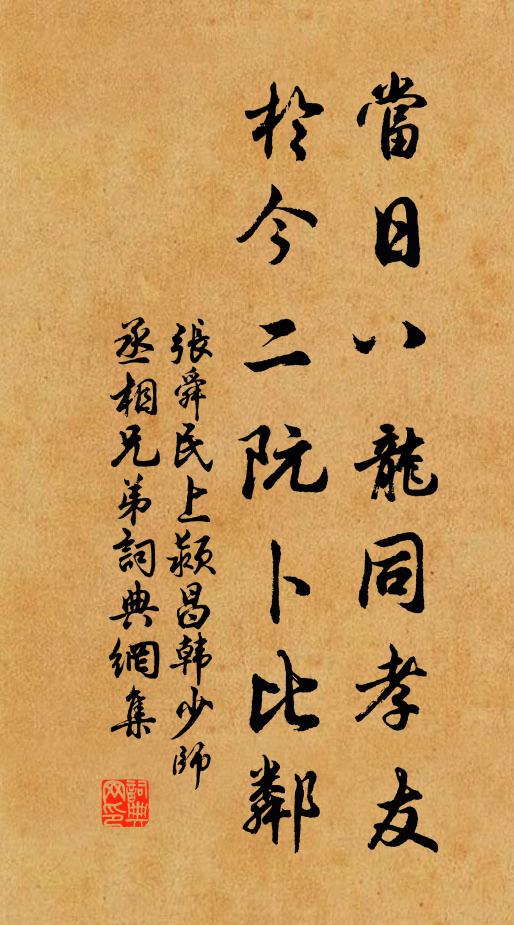 當日八龍同孝友
於今二阮卜比鄰
張舜民上潁昌韓少師
丞相兄弟詞典網集
詞典
网印